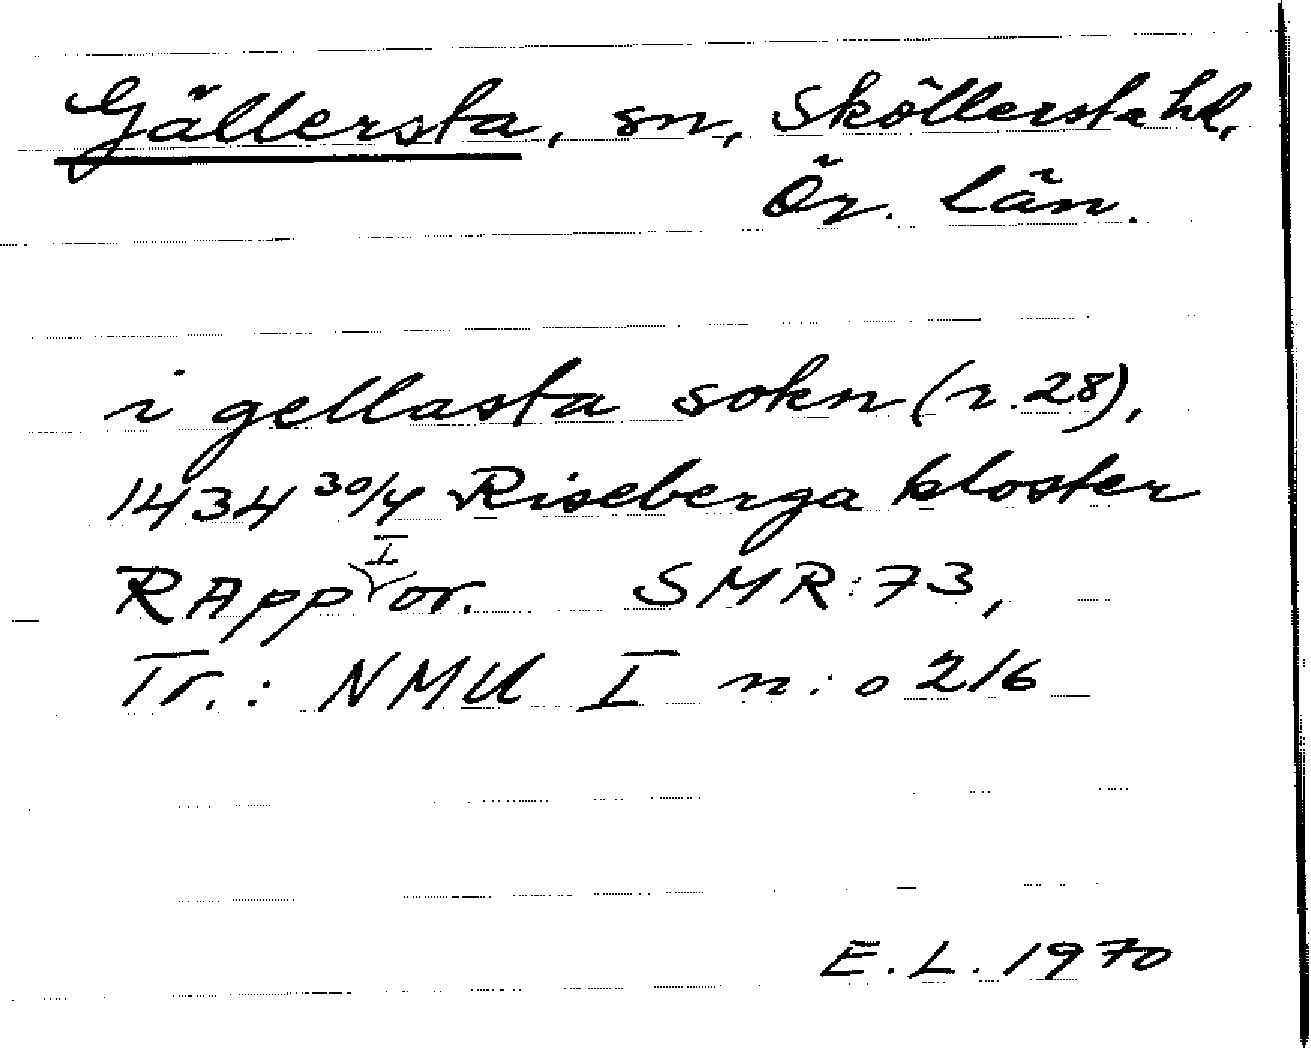 Gällersta, sn, Sköllersta hd,
Ör. län.
i gellasta sokn (r. 28),
1434 30/4 Riseberga kloster
RApp I or. SMR: 73,
Tr.: NMU I n:o 216
E.L. 1970